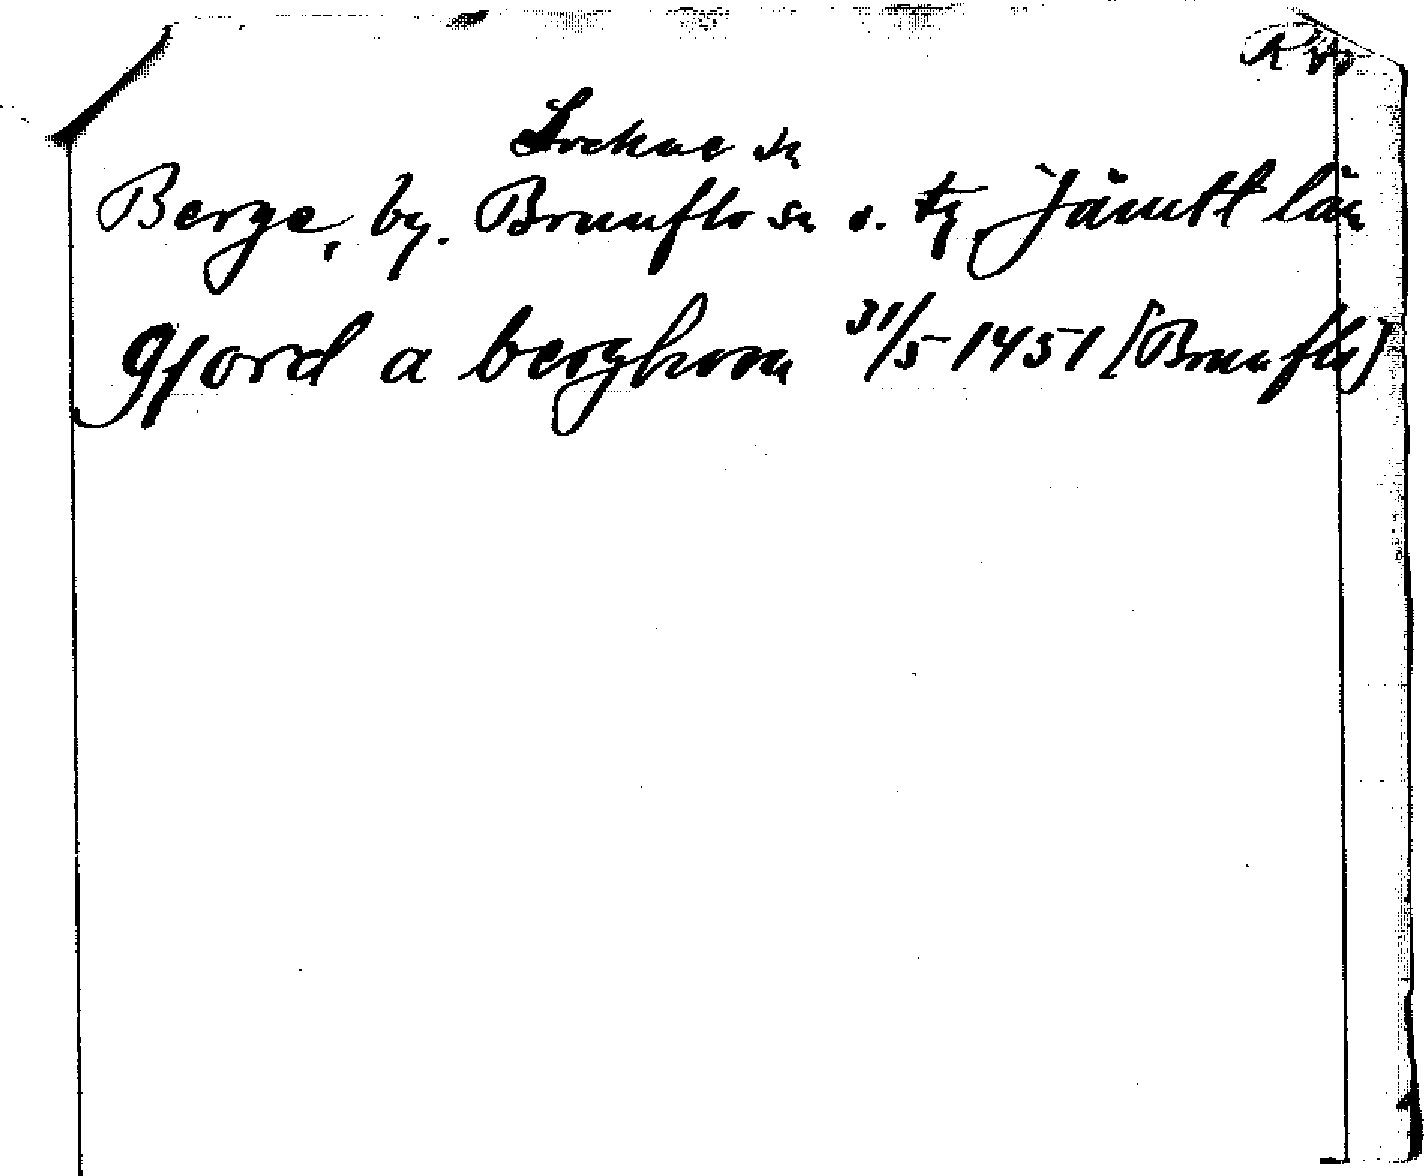 Lockne sn
Berge, by. Brunflo sn o. tg, Jämtl län
Gjord a berghom 31/5 1451 [Brunflo]